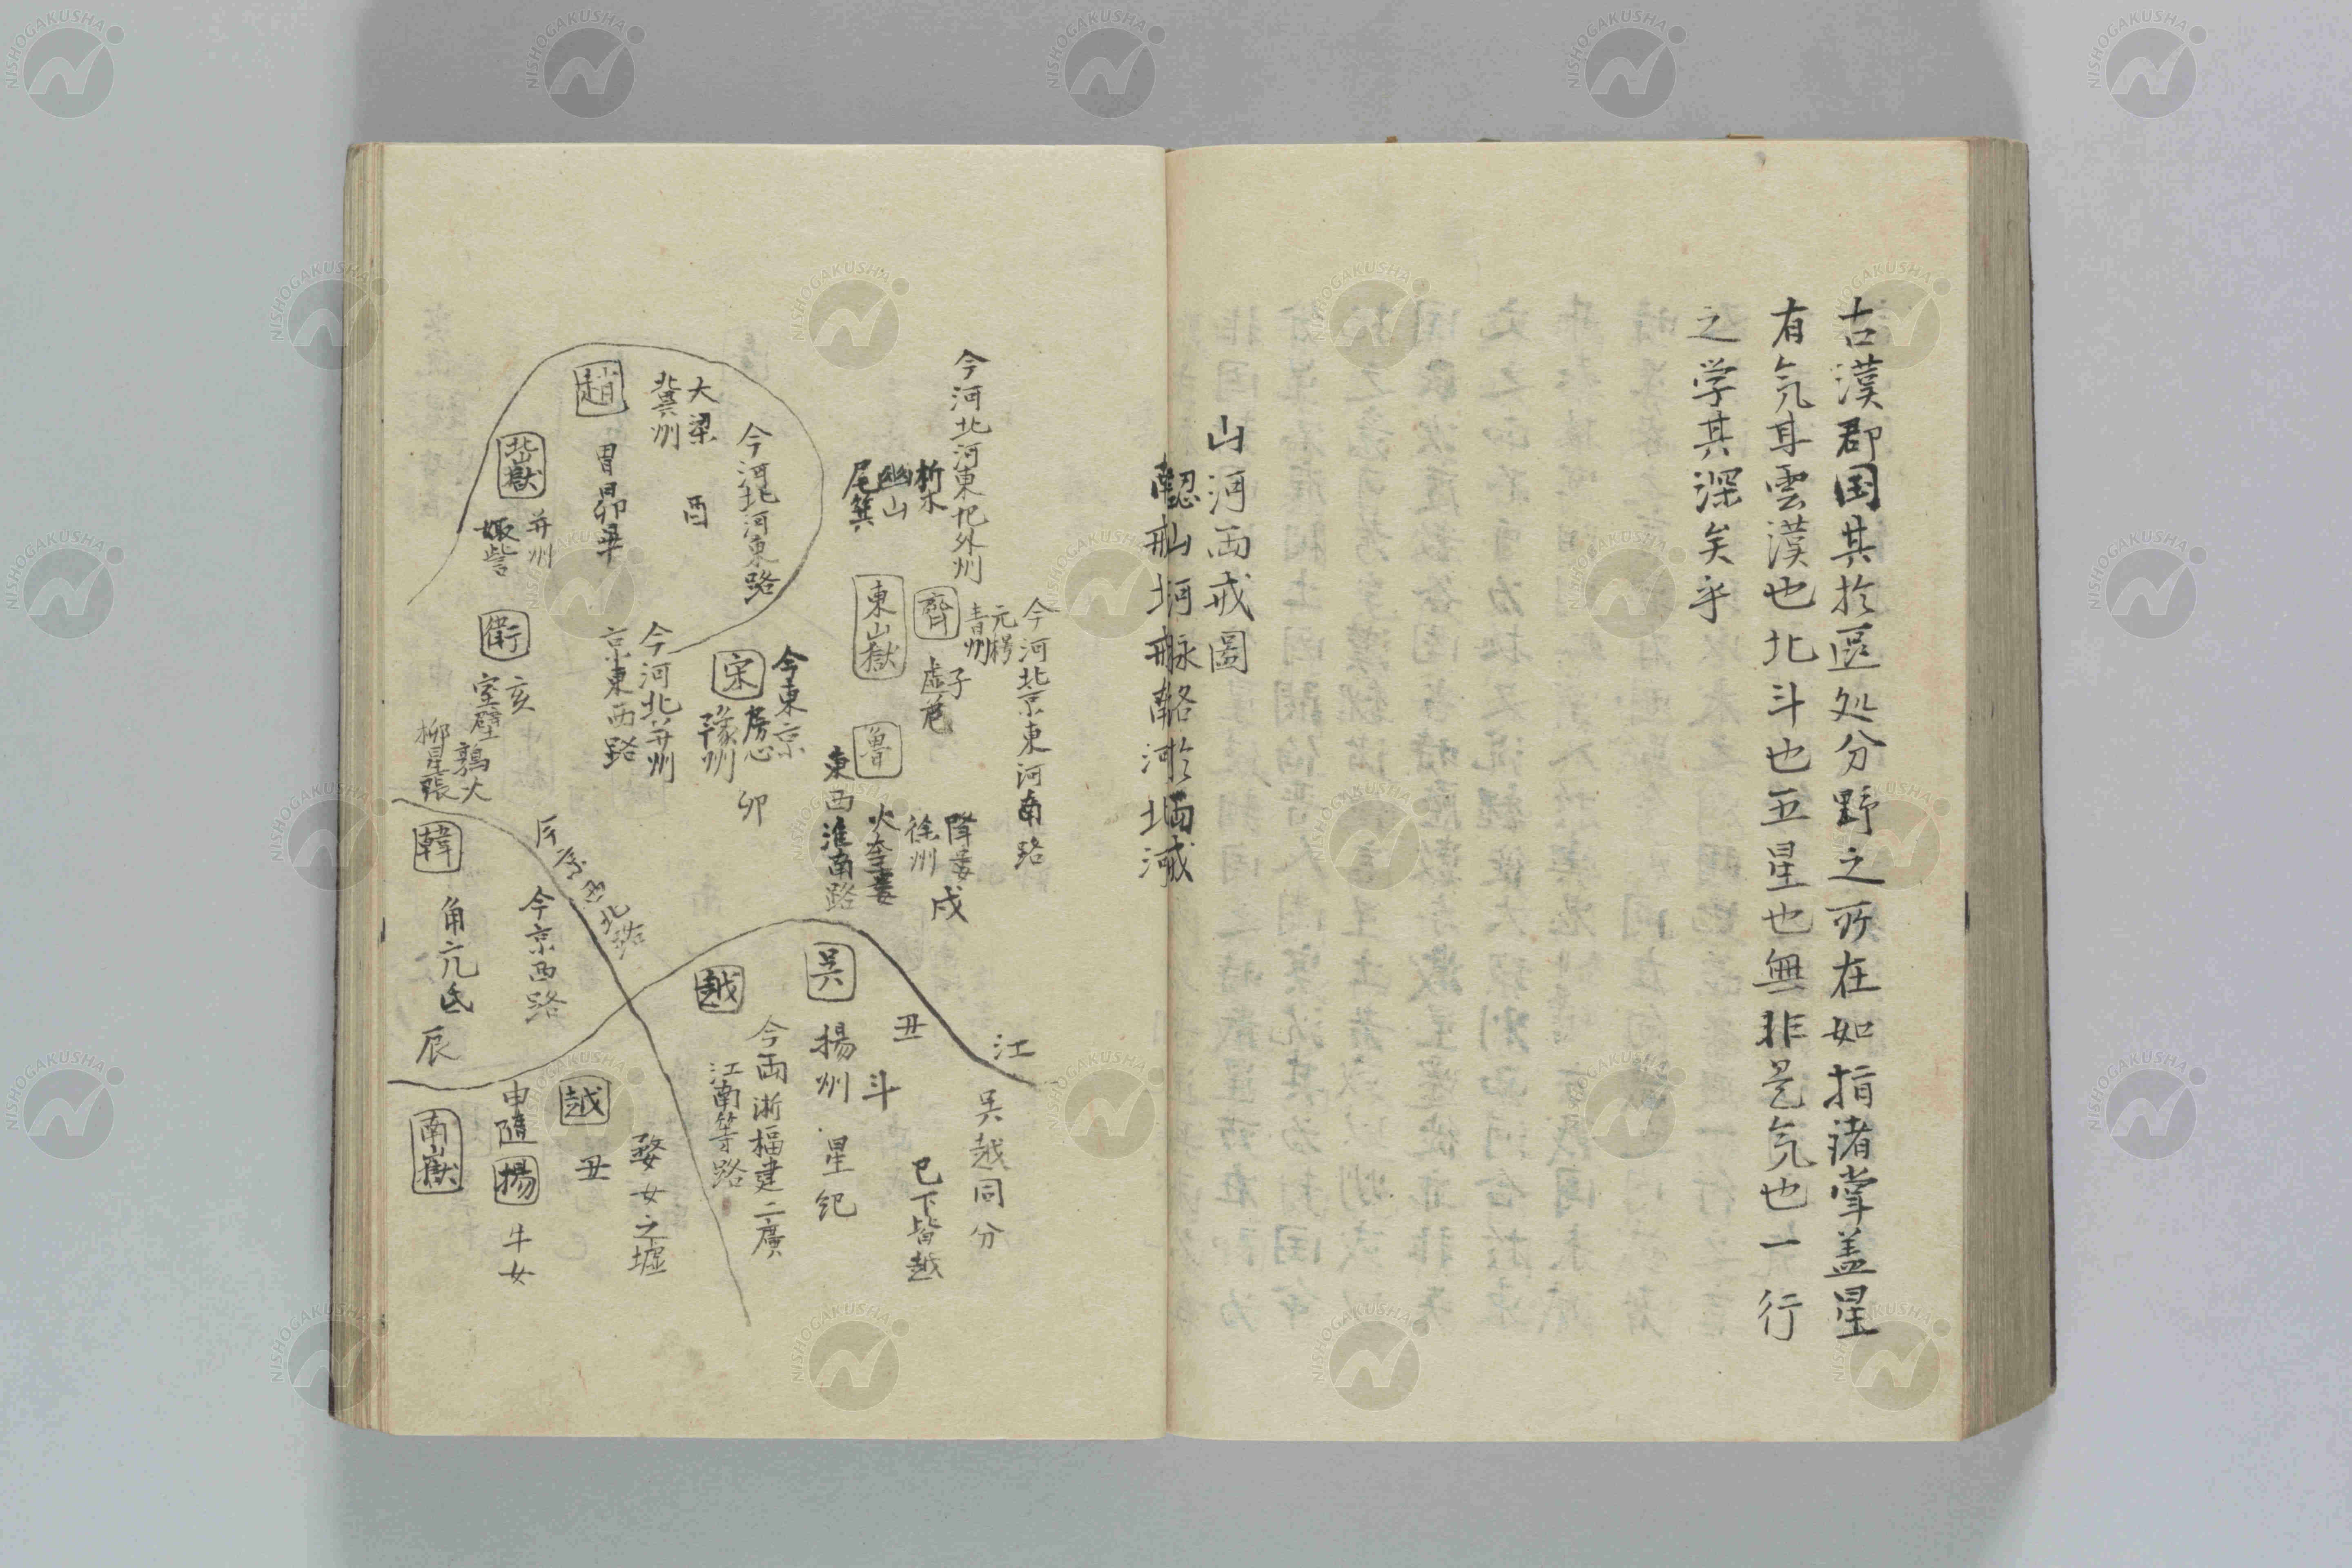 古漢郡国其於區処分野之所在如指諸掌盖星
有氣耳雲漢也北斗也五星也無非是氣也一行
之学其深矣乎
山河両戒圖
今河北河東北外州
析木
幽山
尾箕
今河北京東河南路
元枵
青州
齊
子
虚危
東嶽
魯
降婁
徐州
戌
火奎婁
東西淮南路
今河北河東路
大梁
冀州
酉
趙
胃昴畢
北嶽
并州
娵訾
衛
亥
室壁
今河北并州
京東西路
今東京
宋
房心
豫州
卯
鶉火
柳星張
韓
角亢氐
辰
今京西路
江
吳越同分
已下皆越
丑
斗
吳
揚州
星紀
越
今両浙福建二廣
江南等路
婺女之墟
越
丑
申隨
揚
牛女
南嶽
NISHOGAKUSHA